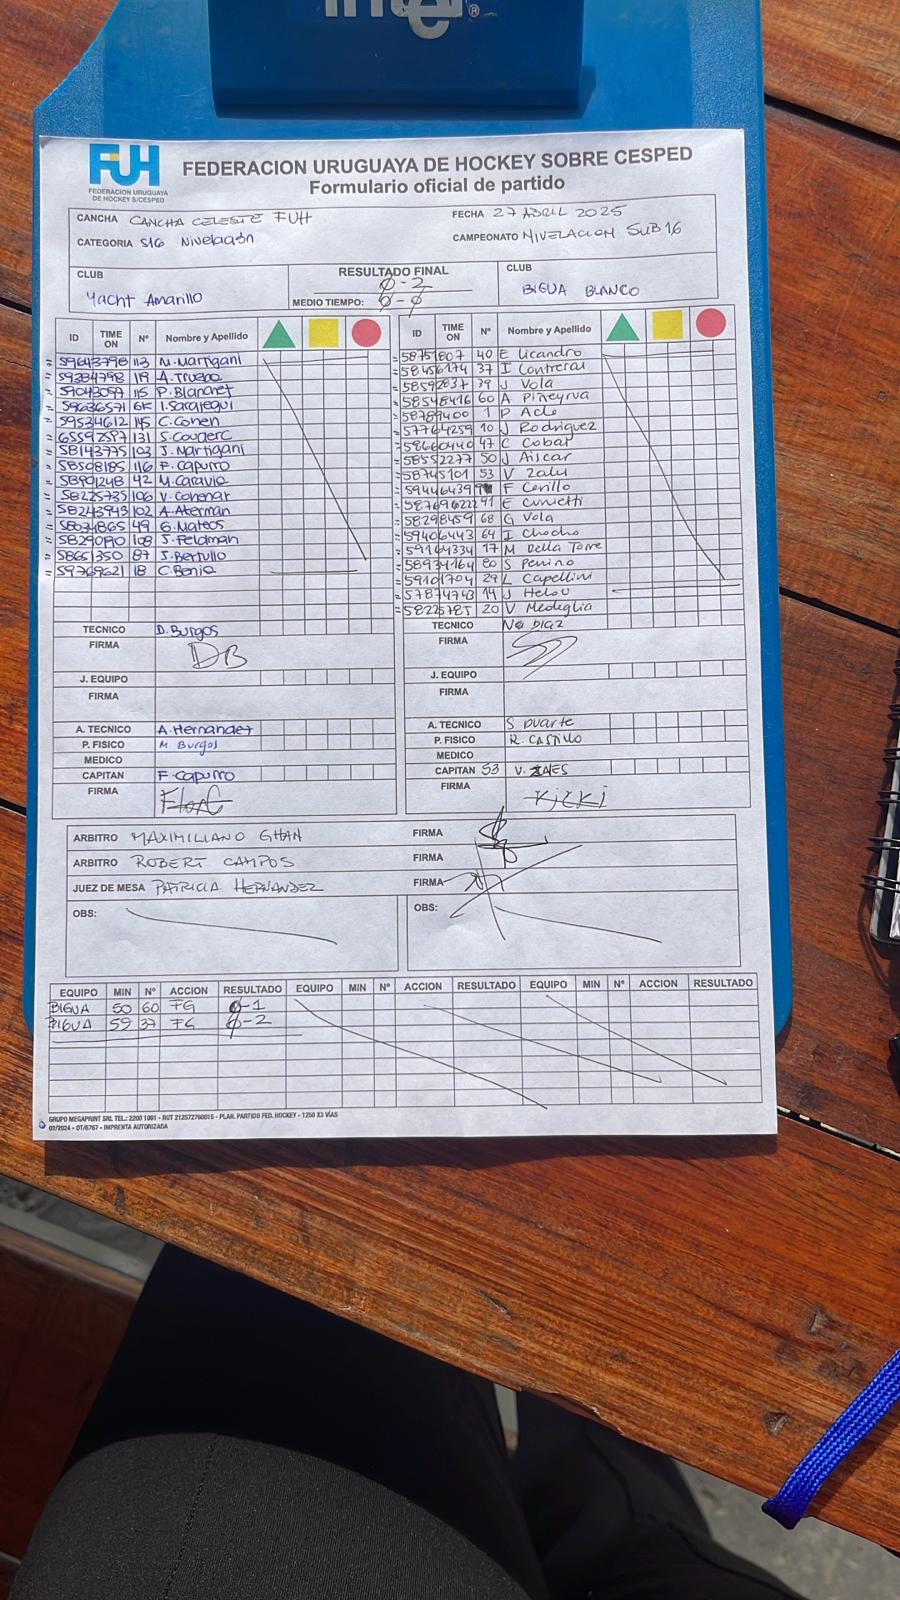 intel
®
FUH
FEDERACION URUGUAYA
DE HOCKEY S/CESPED
FEDERACION URUGUAYA DE HOCKEY SOBRE CESPED
Formulario oficial de partido
CANCHA CANCHA CELESTE FUH
FECHA 27 ABRIL 2025
CATEGORIA S16 Nivelación
CAMPEONATO NIVELACION SUB 16
CLUB
Yacht Amarillo
RESULTADO FINAL
0-2
MEDIO TIEMPO: 0-0
CLUB
BIGUA BLANCO
ID TIME ON Nº Nombre y Apellido
59643798 113 M. Martigani
59384798 119 A. Trueba
59043097 115 P. Blanchet
59636571 I. Saralegui
59534612 145 C. Cohen
65592597 131 S. Couderc
58143775 103 J. Martigani
58508185 116 F. Capurro
58901248 42 M. Caravia
58225735 106 V. Conenar
58243943 102 A. Aterman
58034865 49 G. Mateos
58290190 108 J. Feldman
58651350 87 J. Bertullo
59769621 18 C. Borjo
TECNICO D. Burgos
FIRMA DB
J. EQUIPO
FIRMA
A. TECNICO A. Hernandez
P. FISICO M. Burgos
MEDICO
CAPITAN F. Capurro
FIRMA FlorC
ID TIME ON Nº Nombre y Apellido
58751807 40 E Licandro
58456174 37 I Contreras
58592837 79 J Vola
58548416 60 A Piñeyrua
58789400 1 P Acle
57764259 10 J Rodriguez
58660440 47 C Cobar
58552277 50 J Aiscar
58745101 53 V Zalu
59446439 F Cerillo
58769622 91 E
58298459 68 G Vola
59406443 64 I Chocho
59164334 17 M Della Torre
58934164 80 S Penino
59101704 29 L Capellini
57874743 14 J Helou
58225785 20 V Medeglia
TECNICO Nº DIAZ
FIRMA
J. EQUIPO
FIRMA
A. TECNICO S DUARTE
P. FISICO R. CASTILLO
MEDICO
CAPITAN 53 V.
FIRMA Kicki
ARBITRO MAXIMILIANO GHAN FIRMA
ARBITRO ROBERT CAMPOS FIRMA
JUEZ DE MESA PATRICIA HERNANDEZ FIRMA
OBS:
OBS:
EQUIPO MIN Nº ACCION RESULTADO EQUIPO MIN Nº ACCION RESULTADO EQUIPO MIN Nº ACCION RESULTADO
BIGUA 50 60 FG 0-1
BIGUA 59 37 FG 0-2
GRUPO MEGAPRINT SRL TEL.: 2200 1081 - RUT 212572760015 - PLAN. PARTIDO FED. HOCKEY - 1250 X3 VÍAS
02/2024 - OT/6767 - IMPRENTA AUTORIZADA